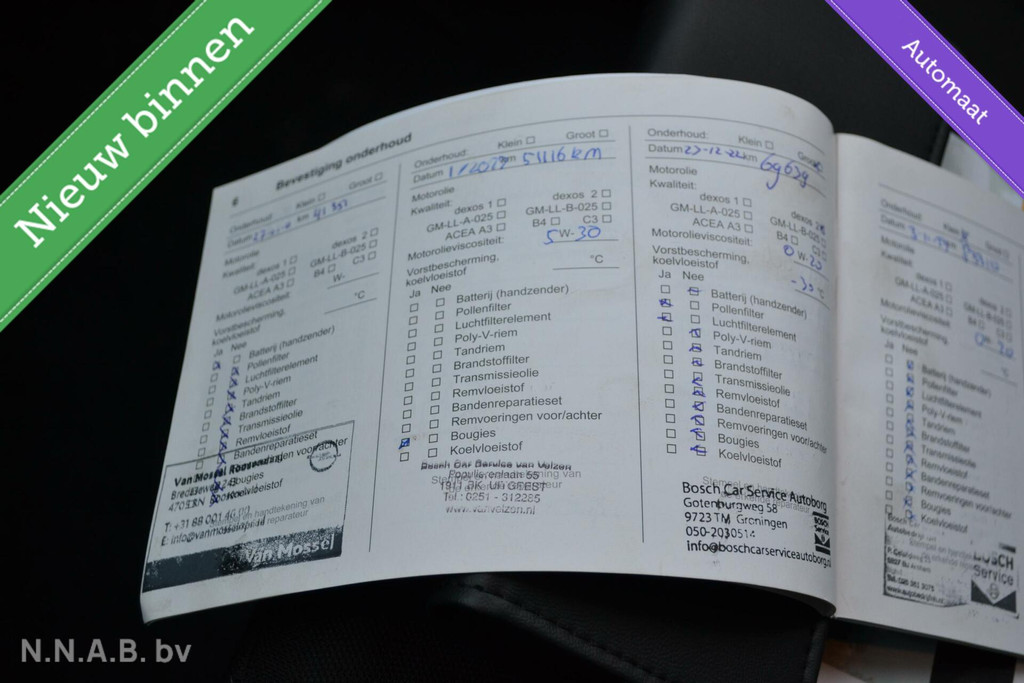 Nieuw binnen
Automaat
Bevestiging onderhoud
6
Onderhoud: Klein Groot
Datum km
Motorolie
Kwaliteit:
dexos 1 dexos 2
GM-LL-A-025 GM-LL-B-025
ACEA A3 B4 C3
Motorolieviscositeit: W-
Vorstbescherming,
koelvloeistof °C
Ja Nee
Batterij (handzender)
Pollenfilter
Luchtfilterelement
Poly-V-riem
Tandriem
Brandstoffilter
Transmissieolie
Remvloeistof
Bandenreparatieset
Bougies
Koelvloeistof
Van Mossel Roosendaal
Van Mossel
Onderhoud: Klein Groot
Datum km 51116 km
Motorolie
Kwaliteit:
dexos 1 dexos 2
GM-LL-A-025 GM-LL-B-025
ACEA A3 B4 C3
Motorolieviscositeit: 5 W-30
Vorstbescherming,
koelvloeistof °C
Ja Nee
Batterij (handzender)
Pollenfilter
Luchtfilterelement
Poly-V-riem
Tandriem
Brandstoffilter
Transmissieolie
Remvloeistof
Bandenreparatieset
Remvoeringen voor/achter
Bougies
Koelvloeistof
Bosch Car Service van Velzen
Tel.: 0251 - 312285
www.vanvelzen.nl
Onderhoud: Klein Groot
Datum 27-12-22 km 69639
Motorolie
Kwaliteit:
dexos 1 dexos 2
GM-LL-A-025 GM-LL-B-025
ACEA A3 B4 C3
Motorolieviscositeit: 0 W-20
Vorstbescherming,
koelvloeistof -30 °C
Ja Nee
Batterij (handzender)
Pollenfilter
Luchtfilterelement
Poly-V-riem
Tandriem
Brandstoffilter
Transmissieolie
Remvloeistof
Bandenreparatieset
Remvoeringen voor/achter
Bougies
Koelvloeistof
Bosch Car Service Autoborg
Gotenburgweg 58
9723 TM Groningen
050-2030514
info@boschcarserviceautoborg.nl
Onderhoud: Klein Groot
Datum km
Motorolie
Kwaliteit:
dexos 1 dexos 2
GM-LL-A-025 GM-LL-B-025
ACEA A3 B4 C3
Motorolieviscositeit: 0W-20
Vorstbescherming,
koelvloeistof °C
Ja Nee
Batterij (handzender)
Pollenfilter
Luchtfilterelement
Poly-V-riem
Tandriem
Brandstoffilter
Transmissieolie
Remvloeistof
Bandenreparatieset
Remvoeringen voor/achter
Bougies
Koelvloeistof
BOSCH
Service
N.N.A.B. bv